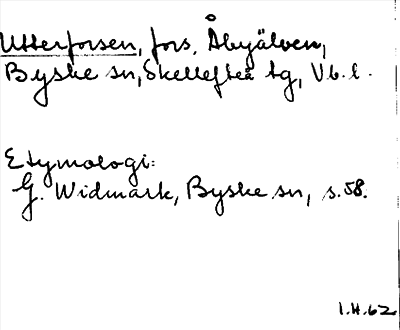 Utterforsen, fors, Åbyälven,
Byske sn, Skellefteå tg, Vb. l.
Etymologi:
G. Widmark, Byske sn, s. 58.
1.H.62